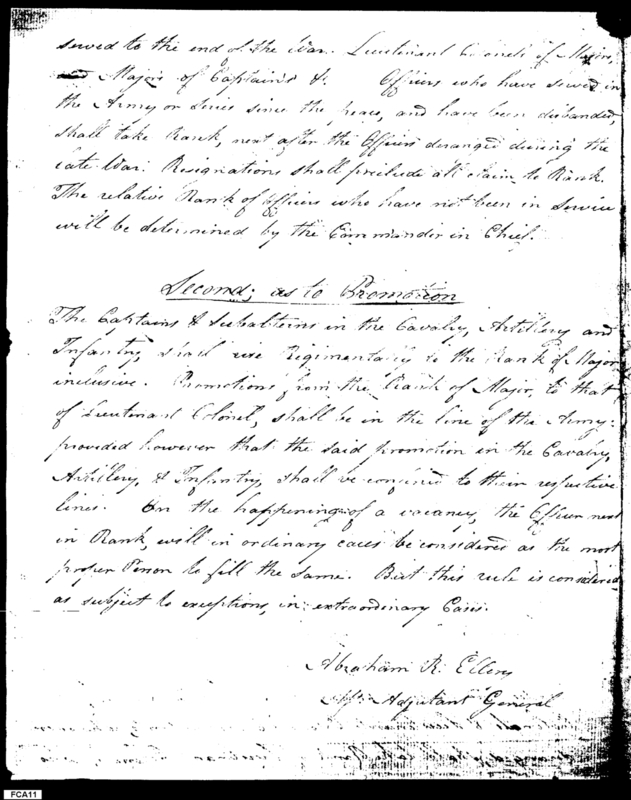 served to the end of the War. Lieutenant Colonels of Majors,
and Majors of Captains &. Officers who have served in
the Army or Levies since the peace, and have been disbanded,
shall take Rank, next after the Officers deranged during the
late War. Resignations shall preclude all claim to Rank.
The relative Rank of Officers who have not been in Service
will be determined by the Commander in Chief.
Second; as to Promotion
The Captains & Subalterns in the Cavalry, Artillery and
Infantry, shall rise Regimentally to the Rank of Major
inclusive. Promotions from the Rank of Major, to that
of Lieutenant Colonel, shall be in the line of the Army:
provided however that the said promotion in the Cavalry,
Artillery, & Infantry shall be confined to their respective
lines. On the happening of a vacancy, the Officer next
in Rank, will in ordinary cases be considered as the most
proper Person to fill the same. But this rule is considered
as subject to exceptions, in extraordinary Cases.
Abraham R. Ellery
Adjutant General
FCA11